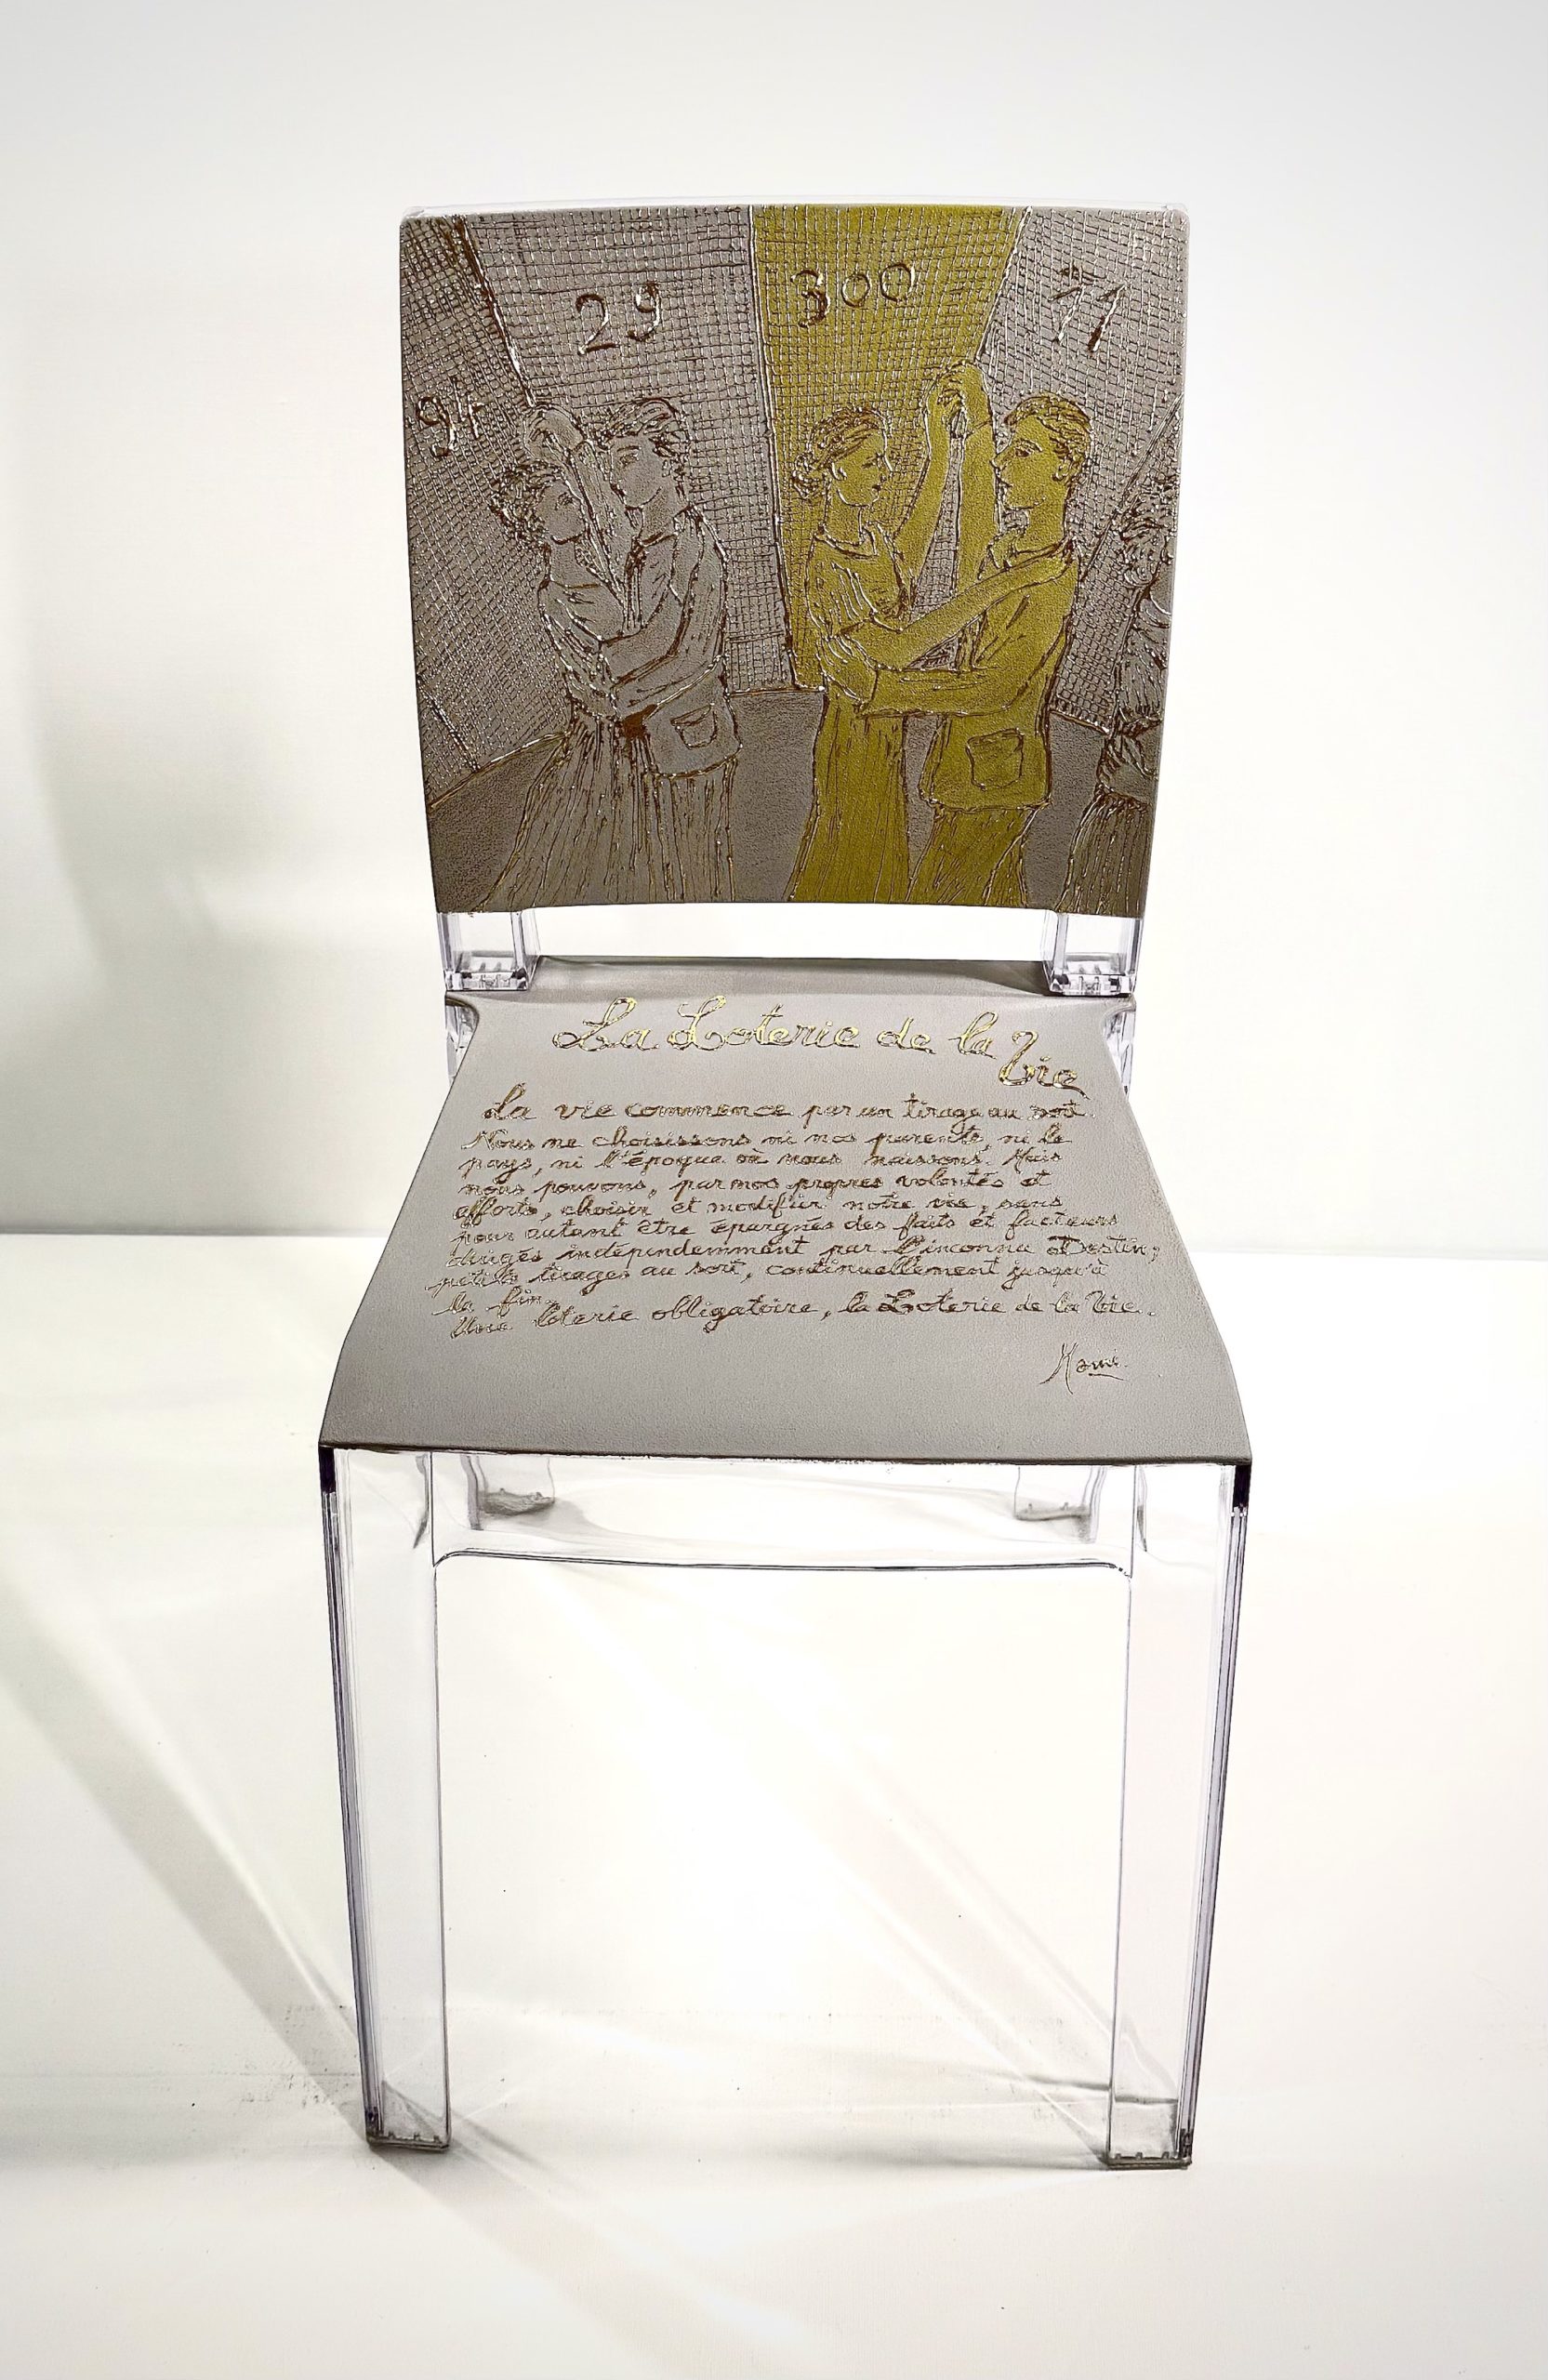 29
300
71
94
La Loterie de la
Vie
La vie commence par un tirage au sort.
Nous ne choisissons ni nos parents, ni le
pays, ni l'époque où nous naissons. Mais
nous pouvons, par nos propres volontés et
efforts, choisir et modifier notre vie, sans
pour autant être épargnés des faits et facteurs
dirigés indépendemment par l'inconnu Destin,
petits tirages au sort, continuellement jusqu'à
la fin.
Une loterie obligatoire, la Loterie de la Vie.